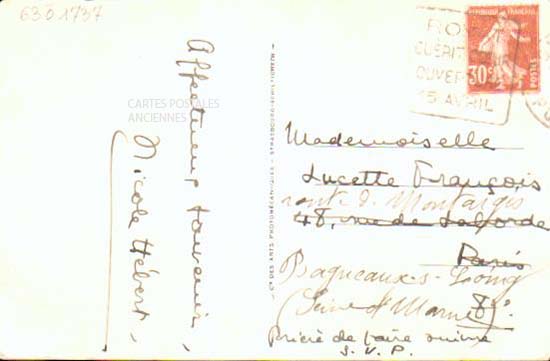 6301737
CARTES POSTALES
ANCIENNES
Affectueux souvenir,
Nicole Hébert,
Cie DES ARTS PHOTOMÉCANIQUES - STRASBOURG-SCHILTIGHEIM
RO
GUÉRIT
OUVER
15 AVRIL
RÉPUBLIQUE FRANÇAISE
30c
POSTES
Mademoiselle
Lucette François
route d. Montargis
48, rue de Laborde
Paris
Bagneaux-s-Loing
(Seine et Marne) 8e.
Prière de faire suivre
S.V.P.